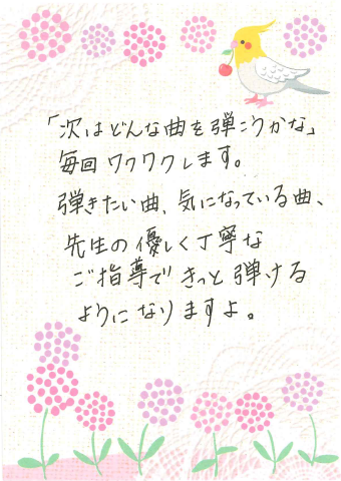 「次はどんな曲を弾こうかな」
毎回ワクワクします。
弾きたい曲、気になっている曲、
先生の優しく丁寧な
ご指導できっと弾ける
ようになりますよ。